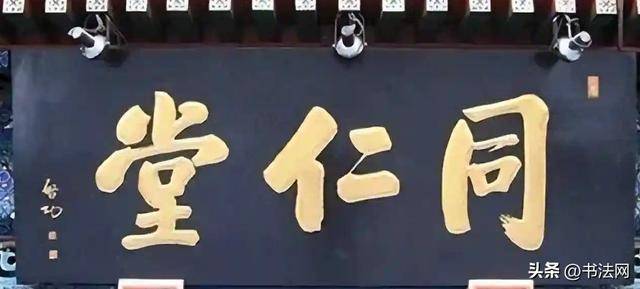 同仁堂
启功
头条 @书法网